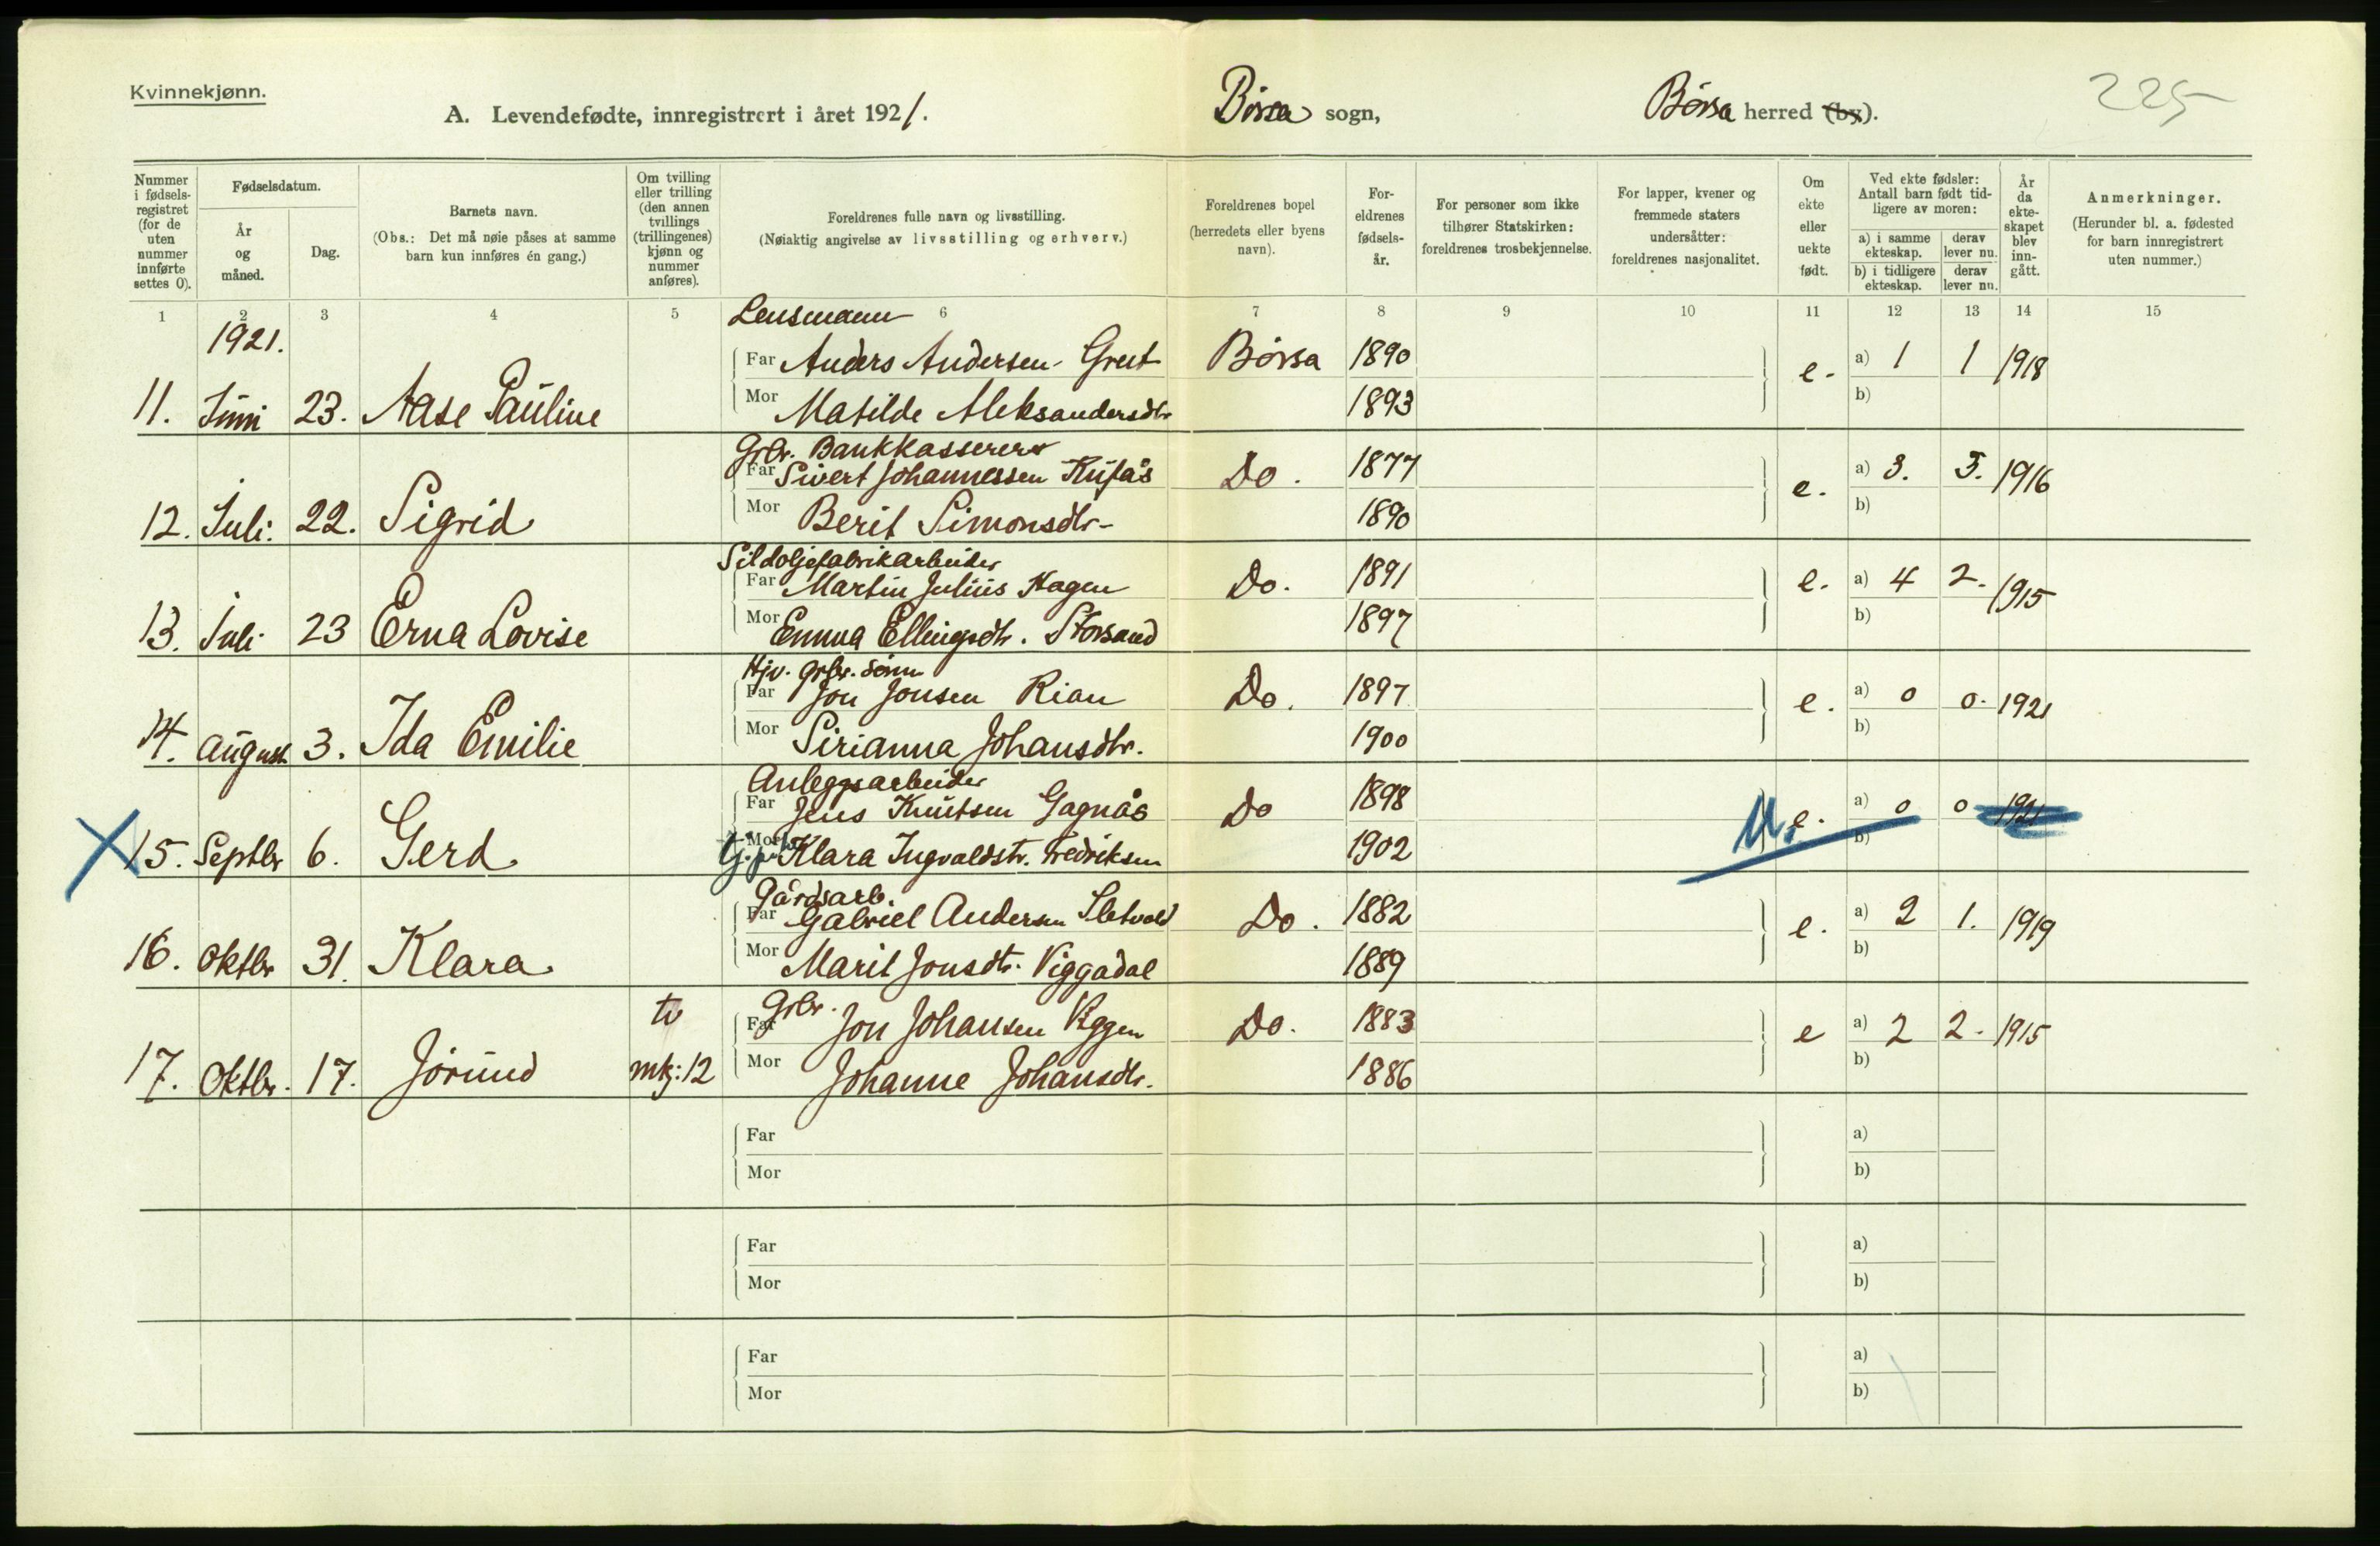 Kvinnekjønn.
A. Levendefødte, innregistrert i året 1921.
Børsa sogn,
Børsa herred (by).
225
Nummer i fødselsregistret (for de uten nummer innførte settes 0).
Fødselsdatum.
År og måned.
Dag.
Barnets navn.
(Obs.: Det må nøie påses at samme barn kun innføres én gang.)
Om tvilling eller trilling (den annen tvillings (trillingenes) kjønn og nummer anføres).
Foreldrenes fulle navn og livsstilling.
(Nøiaktig angivelse av livsstilling og erhverv.)
Foreldrenes bopel (herredets eller byens navn).
Foreldrenes fødselsår.
For personer som ikke tilhører Statskirken: foreldrenes trosbekjennelse.
For lapper, kvener og fremmede staters undersåtter: foreldrenes nasjonalitet.
Om ekte eller uekte født.
Ved ekte fødsler: Antall barn født tidligere av moren:
a) i samme ekteskap. derav lever nu.
b) i tidligere ekteskap. derav lever nu.
År da ekteskapet blev inngått.
Anmerkninger.
(Herunder bl. a. fødested for barn innregistrert uten nummer.)
1 2 3 4 5 6 7 8 9 10 11 12 13 14 15
1921.
Lensmann
Far Anders Andersen Grut Børsa 1890
11. Juni 23. Aase Pauline Mor Matilde Aleksandersdtr 1893 e. a) 1 1 1918
b)
Grbr. Bankkasserer
Far Sivert Johannessen Kufås Do. 1877
12. Juli 22. Sigrid Mor Berit Simonsdtr 1890 e. a) 3. 3. 1916
b)
Sildoljefabrikarbeider
Far Martin Julius Hagen Do. 1891
13. Juli 23 Erna Lovise Mor Emma Ellingsdtr. Storsand 1897 e. a) 4 2. 1915
b)
Hjv. grbr. sønn
Far Jon Jonsen Rian Do. 1897
14. August 3. Ida Emilie Mor Sirianna Johansdtr. 1900 e. a) 0 0. 1921
b)
Anleggsarbeider
Far Jens Knutsen Gagnås Do 1898
15. Septbr 6. Gerd Mor Klara Ingvaldstr. Fredriksen 1902 U. e. a) 0 0 1921
b)
Gårdsarb.
Far Gabriel Andersen Sletvold Do. 1882
16. Oktbr 31. Klara Mor Marit Jonsdtr. Viggadal 1889 e. a) 2 1. 1919
b)
tv
Grbr.
Far Jon Johansen Viggen Do. 1883
17. Oktbr. 17. Jørund mkj: 12 Mor Johanne Johansdtr. 1886 e a) 2 2. 1915
b)
Far a)
Mor b)
Far a)
Mor b)
Far a)
Mor b)